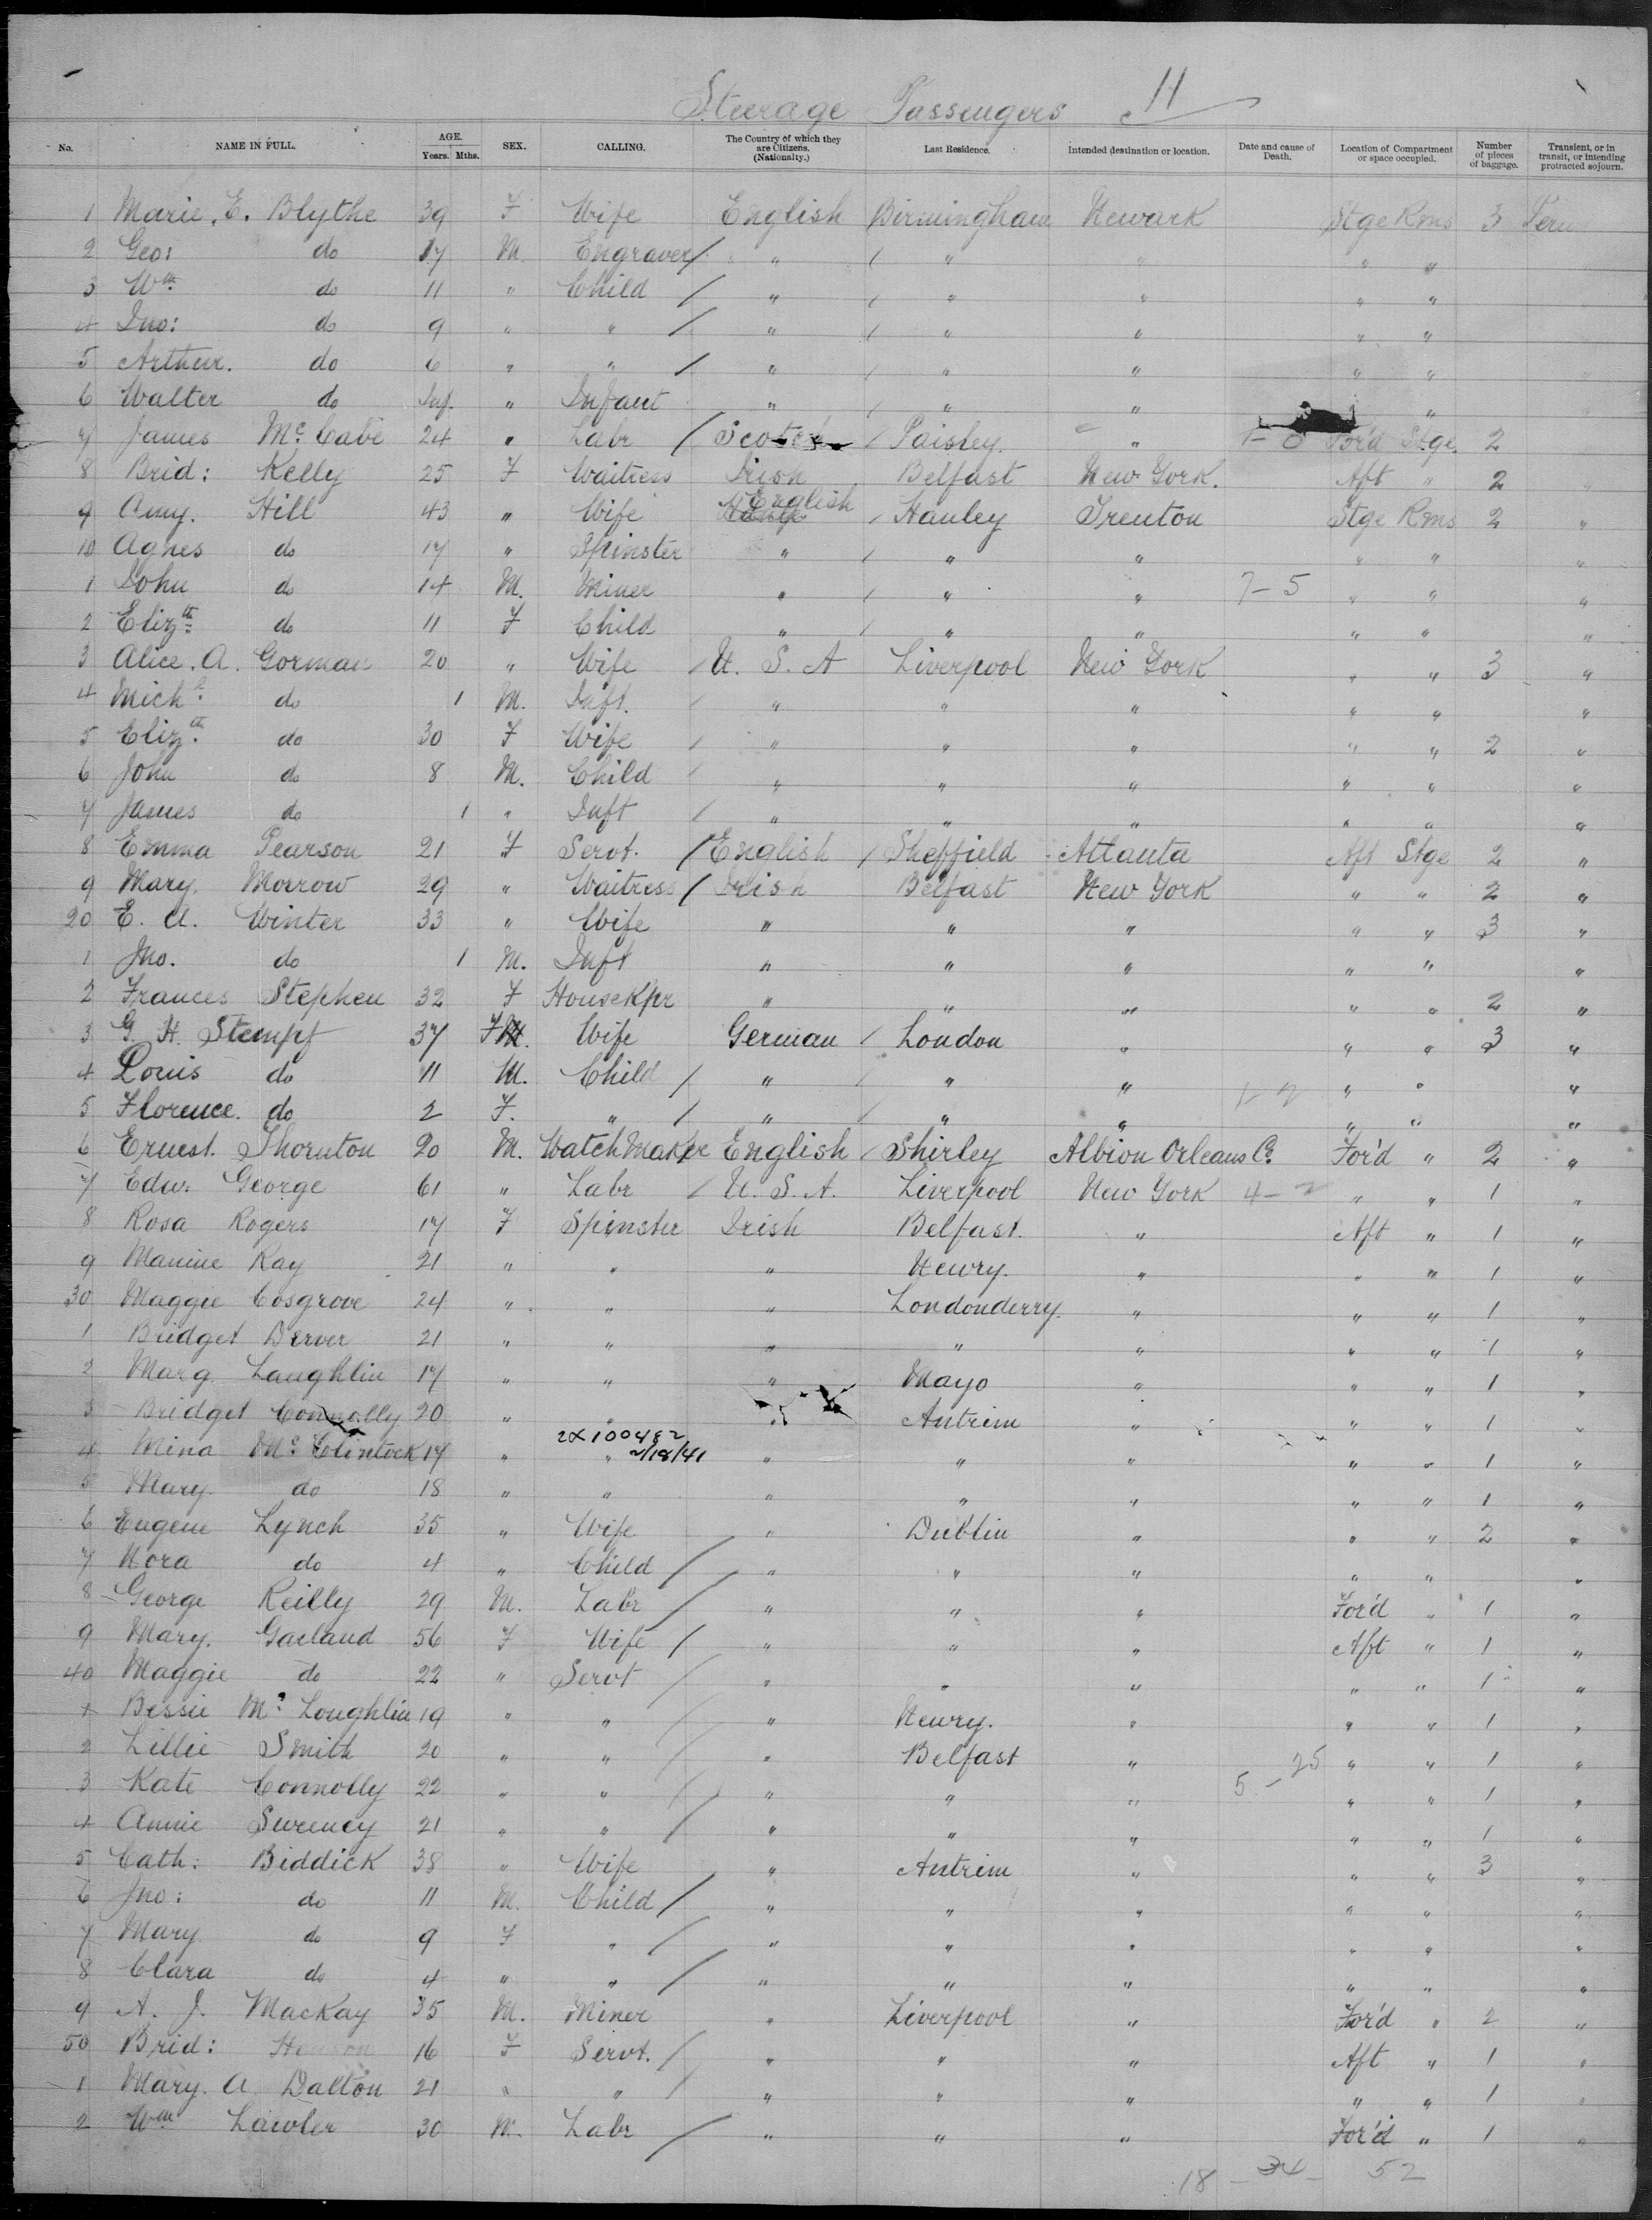 Steerage Passengers 11
No. NAME IN FULL. AGE. Years. Mths. SEX. CALLING. The Country of which they are Citizens. (Nationalty.) Last Residence. Intended destination or location. Date and cause of Death. Location of Compartment or space occupied. Number of pieces of baggage. Transient, or in transit, or intending protracted sojourn.
1 Marie. E. Blythe 39 F Wife English Birmingham Newark Stge Rms 3
2 Geo: do 17 M. Engraver / " / " " " "
3 Wm do 11 " Child / " / " " " "
4 Jno: do 9 " " / " / " " " "
5 Arthur. do 6 " " / " / " " " "
6 Walter do Inf. " Infant " / " " "
7 James Mc Cabe 24 " Labr / Scotch / Paisley. " 1-0 For'd Stge. 2
8 Brid: Kelly 25 F Waitress Irish Belfast New York. Aft " 2 "
9 Amy. Hill 43 " Wife English / Hanley Trenton Stge Rms 2 "
10 Agnes do 17 " Spinster " / " " " " "
1 John do 14 M. Miner " / " " 7-5 " " "
2 Elizth do 11 F Child " / " " " " "
3 Alice. A. Gorman 20 " Wife / U. S. A Liverpool New York " " 3 "
4 Michl do 1 M. Inft. / " " " " " "
5 Elizth do 30 F Wife / " " " " " 2 "
6 John do 8 M. Child / " " " " " "
7 James do 1 " Inft / " " " " " "
8 Emma Pearson 21 F Servt. / English / Sheffield Atlanta Aft Stge 2 "
9 Mary. Morrow 29 " Waitress / Irish Belfast New York " " 2 "
20 E. A. Winter 33 " Wife " " " " " 3 "
1 Jno. do 1 M. Inft " " " " " "
2 Frances Stephen 32 F HouseKpr " " " " " 2 "
3 G. H. Stempf 37 F Wife German / London " " " 3 "
4 Louis do 11 M. Child / " / " " 1-2 " " "
5 Florence. do 2 F. " / " / " " " " "
6 Ernest. Thornton 20 M. WatchMaker English / Shirley Albion Orleans Co. For'd " 2 "
7 Edw: George 61 " Labr / U. S. A. Liverpool New York 4-2 " " 1 "
8 Rosa Rogers 17 F Spinster Irish Belfast. " Aft " 1 "
9 Mamie Kay 21 " " " Newry. " " " 1 "
30 Maggie Cosgrove 24 " " " Londonderry. " " " 1 "
1 Bridget Derver 21 " " " " " " " 1 "
2 Marg. Laughlin 17 " " " Mayo " " " 1 "
3 Bridget Connolly 20 " " " Antrim " " " 1 "
2X100482
4 Mina Mc Clintock 17 " " 2/18/41 " " " " " 1 "
5 Mary. do 18 " " " " " " " 1 "
6 Eugene Lynch 35 " Wife " Dublin " " " 2 "
7 Nora do 4 " Child / " " " " " "
8 George Reilly 29 M. Labr / " " " For'd " 1 "
9 Mary. Garland 56 F Wife / " " " Aft " 1 "
40 Maggie do 22 " Servt / " " " " " 1 "
1 Bessie Mc Loughlin 19 " " / " Newry. " " " 1 "
2 Lillie Smith 20 " " / " Belfast " " " 1 "
3 Kate Connolly 22 " " / " " " 5-25 " " 1 "
4 Annie Sweeney 21 " " / " " " " " 1 "
5 Cath: Biddick 38 " Wife " Antrim " " " 3 "
6 Jno: do 11 M. Child / " " " " " "
7 Mary do 9 F " / " " " " " "
8 Clara do 4 " " / " " " " " "
9 A. J. MacKay 35 M. Miner " Liverpool " For'd " 2 "
50 Brid: 16 F Servt. / " " " Aft " 1 "
1 Mary. A. Dalton 21 " " / " " " " " 1 "
2 Wm Lawler 30 M. Labr / " " " For'd " 1 "
18 - 34 - 52